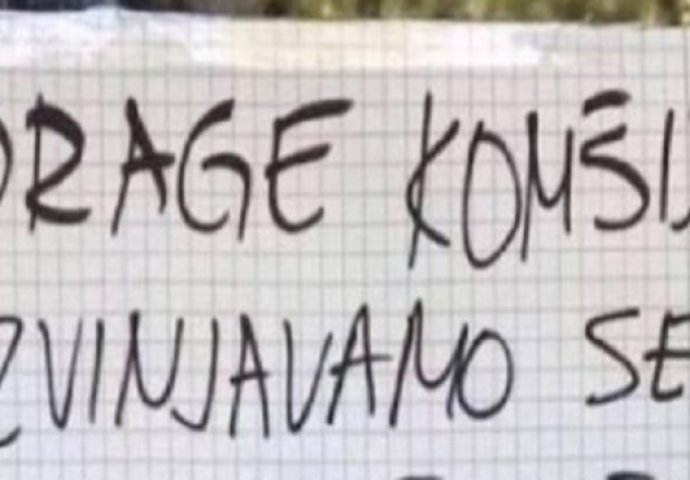 DRAGE KOMŠIJ
ZVINJAVAMO SE